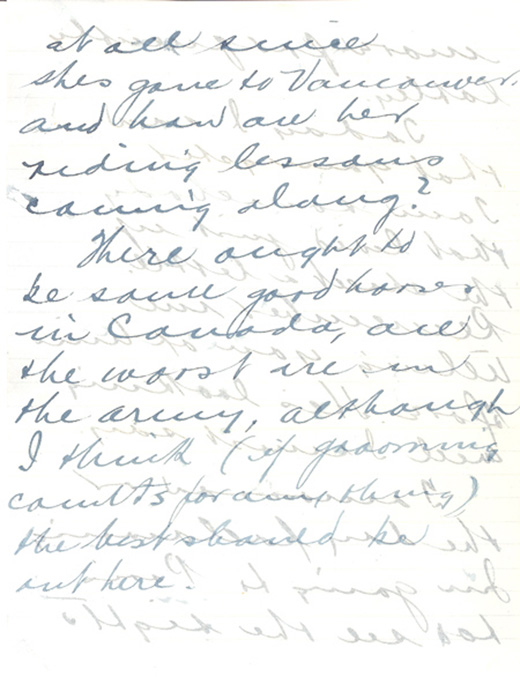 at all since
shes gone to Vancouver.
and how are her
riding lessons
coming along?
There ought to
be some good horses
in Canada, all
the worst are in
the army, although
I think (if grooming
counts for anything)
the best should be
out here.